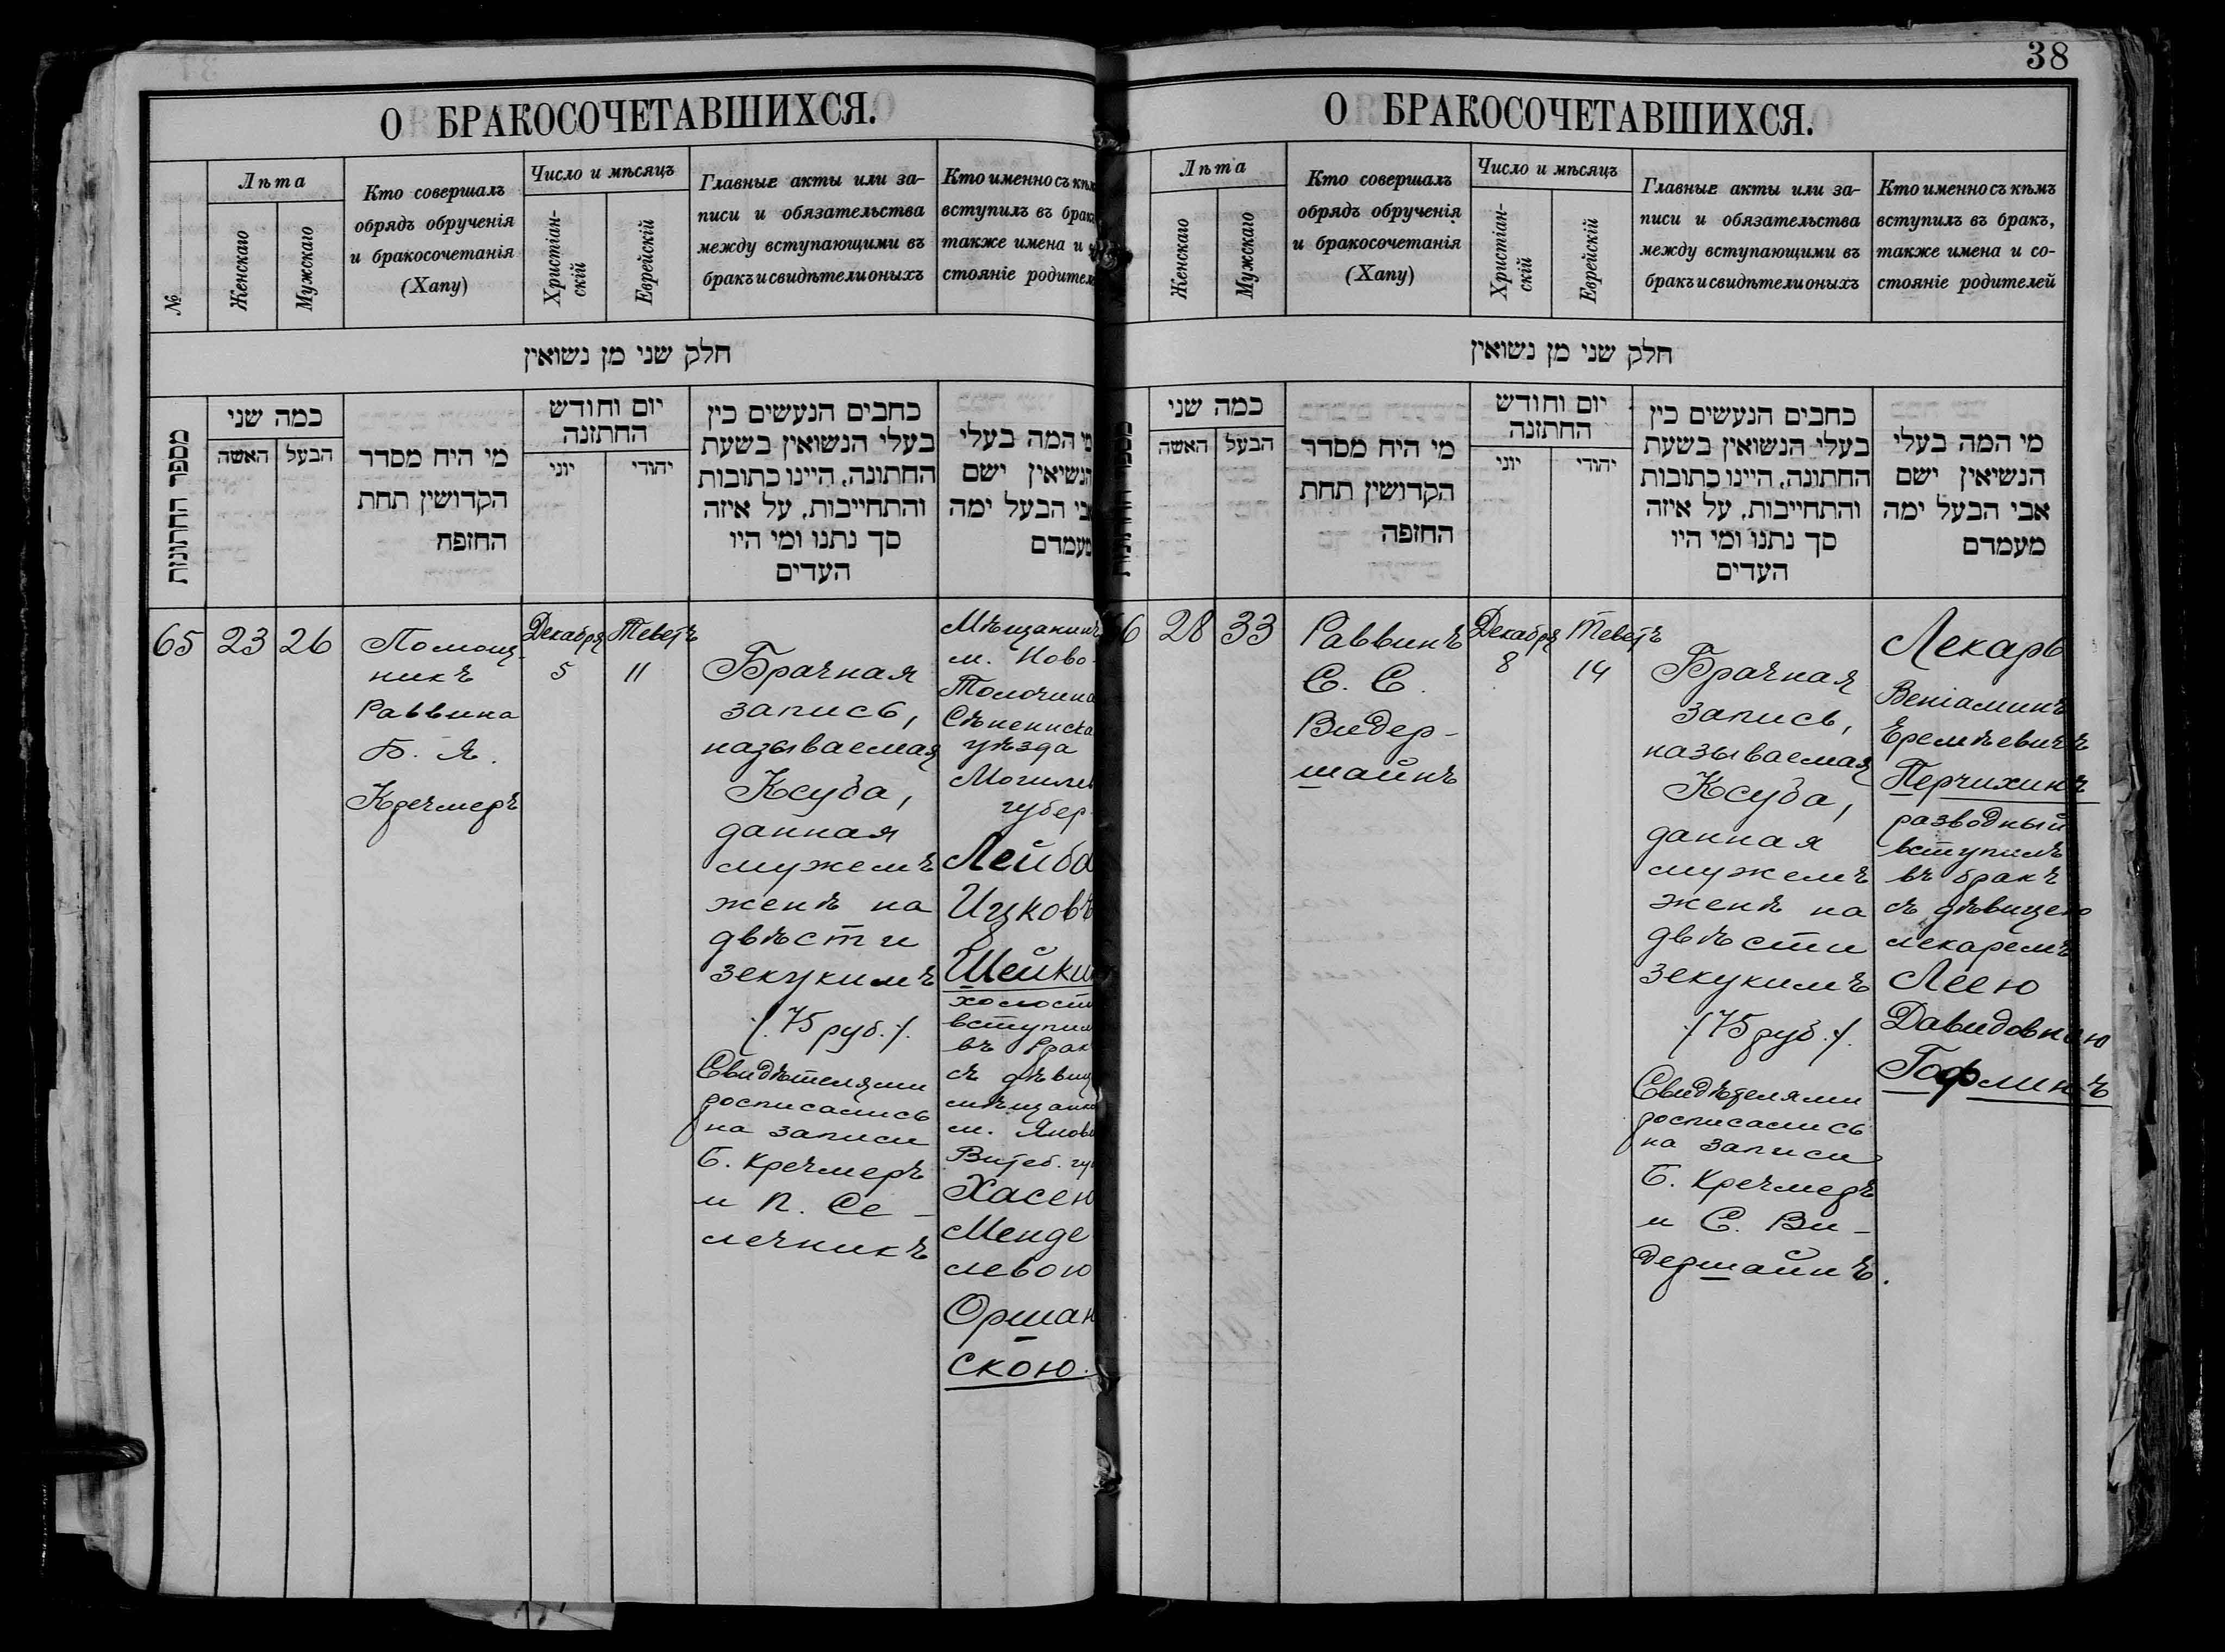 О БРАКОСОЧЕТАВШИХСЯ.
№
Лѣта
Женскаго
Мужскаго
Кто совершалъ
обрядъ обрученія
и бракосочетанія
(Хапу)
Число и мѣсяцъ
Христіан-
скій
Еврейскій
Главные акты или за-
писи и обязательства
между вступающими въ
бракъ и свидѣтели оныхъ
Кто именно съ кѣм
вступилъ въ брак
также имена и
стояніе родител
חלק שני מן נשואין
מספר החתונות
כמה שני
האשה
הבעל
מי היח מסדר
הקדושין תחת
החזפח
יום וחודש
החתזנה
יוני
יהודי
כחבים הנעשים כין
בעלי הנשואין בשעת
החתונה, היינו כתובות
והתחייבות, על איזה
סך נתנו ומי היו
העדים
מי המה בעלי
הנשיאין ישם
אבי הבעל ימה
מעמדם
65
23
26
Помощ-
никъ
Раввина
Б. Я.
Кречмеръ
Декабря
5
Теветъ
11
Брачная
запись,
называемая
Ксуба,
данная
мужемъ
женѣ на
двѣсти
зекукимъ
/.75 руб./.
Свидѣтелями
росписались
на записи
Б. Кречмеръ
и П. Се-
лечникъ
Мѣщанинъ
м. Ново-
Толочина
Сѣнениска
уѣзда
Могилев
губер.
Лейба
Ицковъ
Шейки
холост
вступил
въ брак
съ дѣвиц
мѣщанк
м. Янови
Витеб. гу
Хасею
Менде
левою
Оршан
скою.
38
О БРАКОСОЧЕТАВШИХСЯ.
Лѣта
Женскаго
Мужскаго
Кто совершалъ
обрядъ обрученія
и бракосочетанія
(Хапу)
Число и мѣсяцъ
Христіан-
скій
Еврейскій
Главные акты или за-
писи и обязательства
между вступающими въ
бракъ и свидѣтели оныхъ
Кто именно съ кѣмъ
вступилъ въ бракъ,
также имена и со-
стояніе родителей
חלק שני מן נשואין
כמה שני
האשה
הבעל
מי היח מסדר
הקדושין תחת
החזפה
יום וחודש
החתזנה
יוני
יהודי
כחבים הנעשים כין
בעלי הנשואין בשעת
החתונה, היינו כתובות
והתחייבות, על איזה
סך נתנו ומי היו
העדים
מי המה בעלי
הנשיאין ישם
אבי הבעל ימה
מעמדם
66
28
33
Раввинъ
С. С.
Видер-
шайнъ
Декабря
8
Теветъ
14
Брачная
запись,
называемая
Ксуба,
данная
мужемъ
женѣ на
двѣсти
зекукимъ
/.75 руб./.
Свидѣтелями
росписались
на записи
Б. Кречмеръ
и С. Ви-
дершайнъ.
Лекарь
Веніаминъ
Еремѣевичъ
Перчихинъ
разводный
вступилъ
въ бракъ
съ дѣвицею
лекаремъ
Леею
Давидовною
Гофлинъ